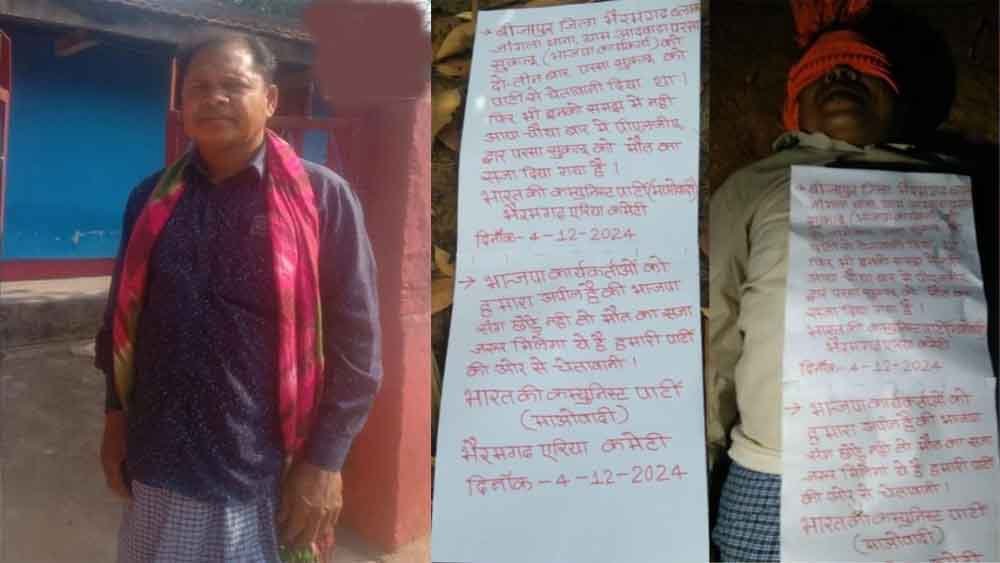 → बीजापुर जिला भैरमगढ ब्लाक
जांगला थाना, ग्राम आदवाडा परसा
सुकालू (भाजपा कार्यकर्ता) को
दो-तीन बार परसा सुकालू को
पार्टी से चेतावनी दिया था।
फिर भी इनको समझ में नही
आया-चौथा बार में पीएलजीए
द्वार परसा सुकालू को मौत का
सजा दिया गया है।
भारत की कम्युनिस्ट पार्टी (माओवादी)
भैरमगढ एरिया कमेटी
दिनाँक-4-12-2024
→ भाजपा कार्यकर्ताओं को
हमारा अपील है की भाजपा
संग छोडे नही तो मौत का सजा
जरूर मिलेगा ये है हमारी पार्टी
की ओर से चेतावानी।
भारत की कम्युनिस्ट पार्टी
(माओवादी)
भैरमगढ एरिया कमेटी
दिनाँक-4-12-2024
→ बीजापुर जिला भैरमगढ
जांगला थाना, ग्राम
सुकालू (भाजपा कार्यकर्ता)
फिर भी इनको समझ में
द्वार परसा सुकालू को मौत का
सजा दिया गया है।
भारत की कम्युनिस्ट पार्टी
भैरमगढ एरिया कमेटी
दिनाँक-4-12-2024
→ भाजपा कार्यकर्ताओं को
हमारा अपील है की भाजपा
संग छोडे नही तो मौत का सजा
जरूर मिलेगा ये है हमारी पार्टी
की ओर से चेतावानी।
भारत की कम्युनिस्ट पार्टी
(माओवादी)
एरिया कमेटी